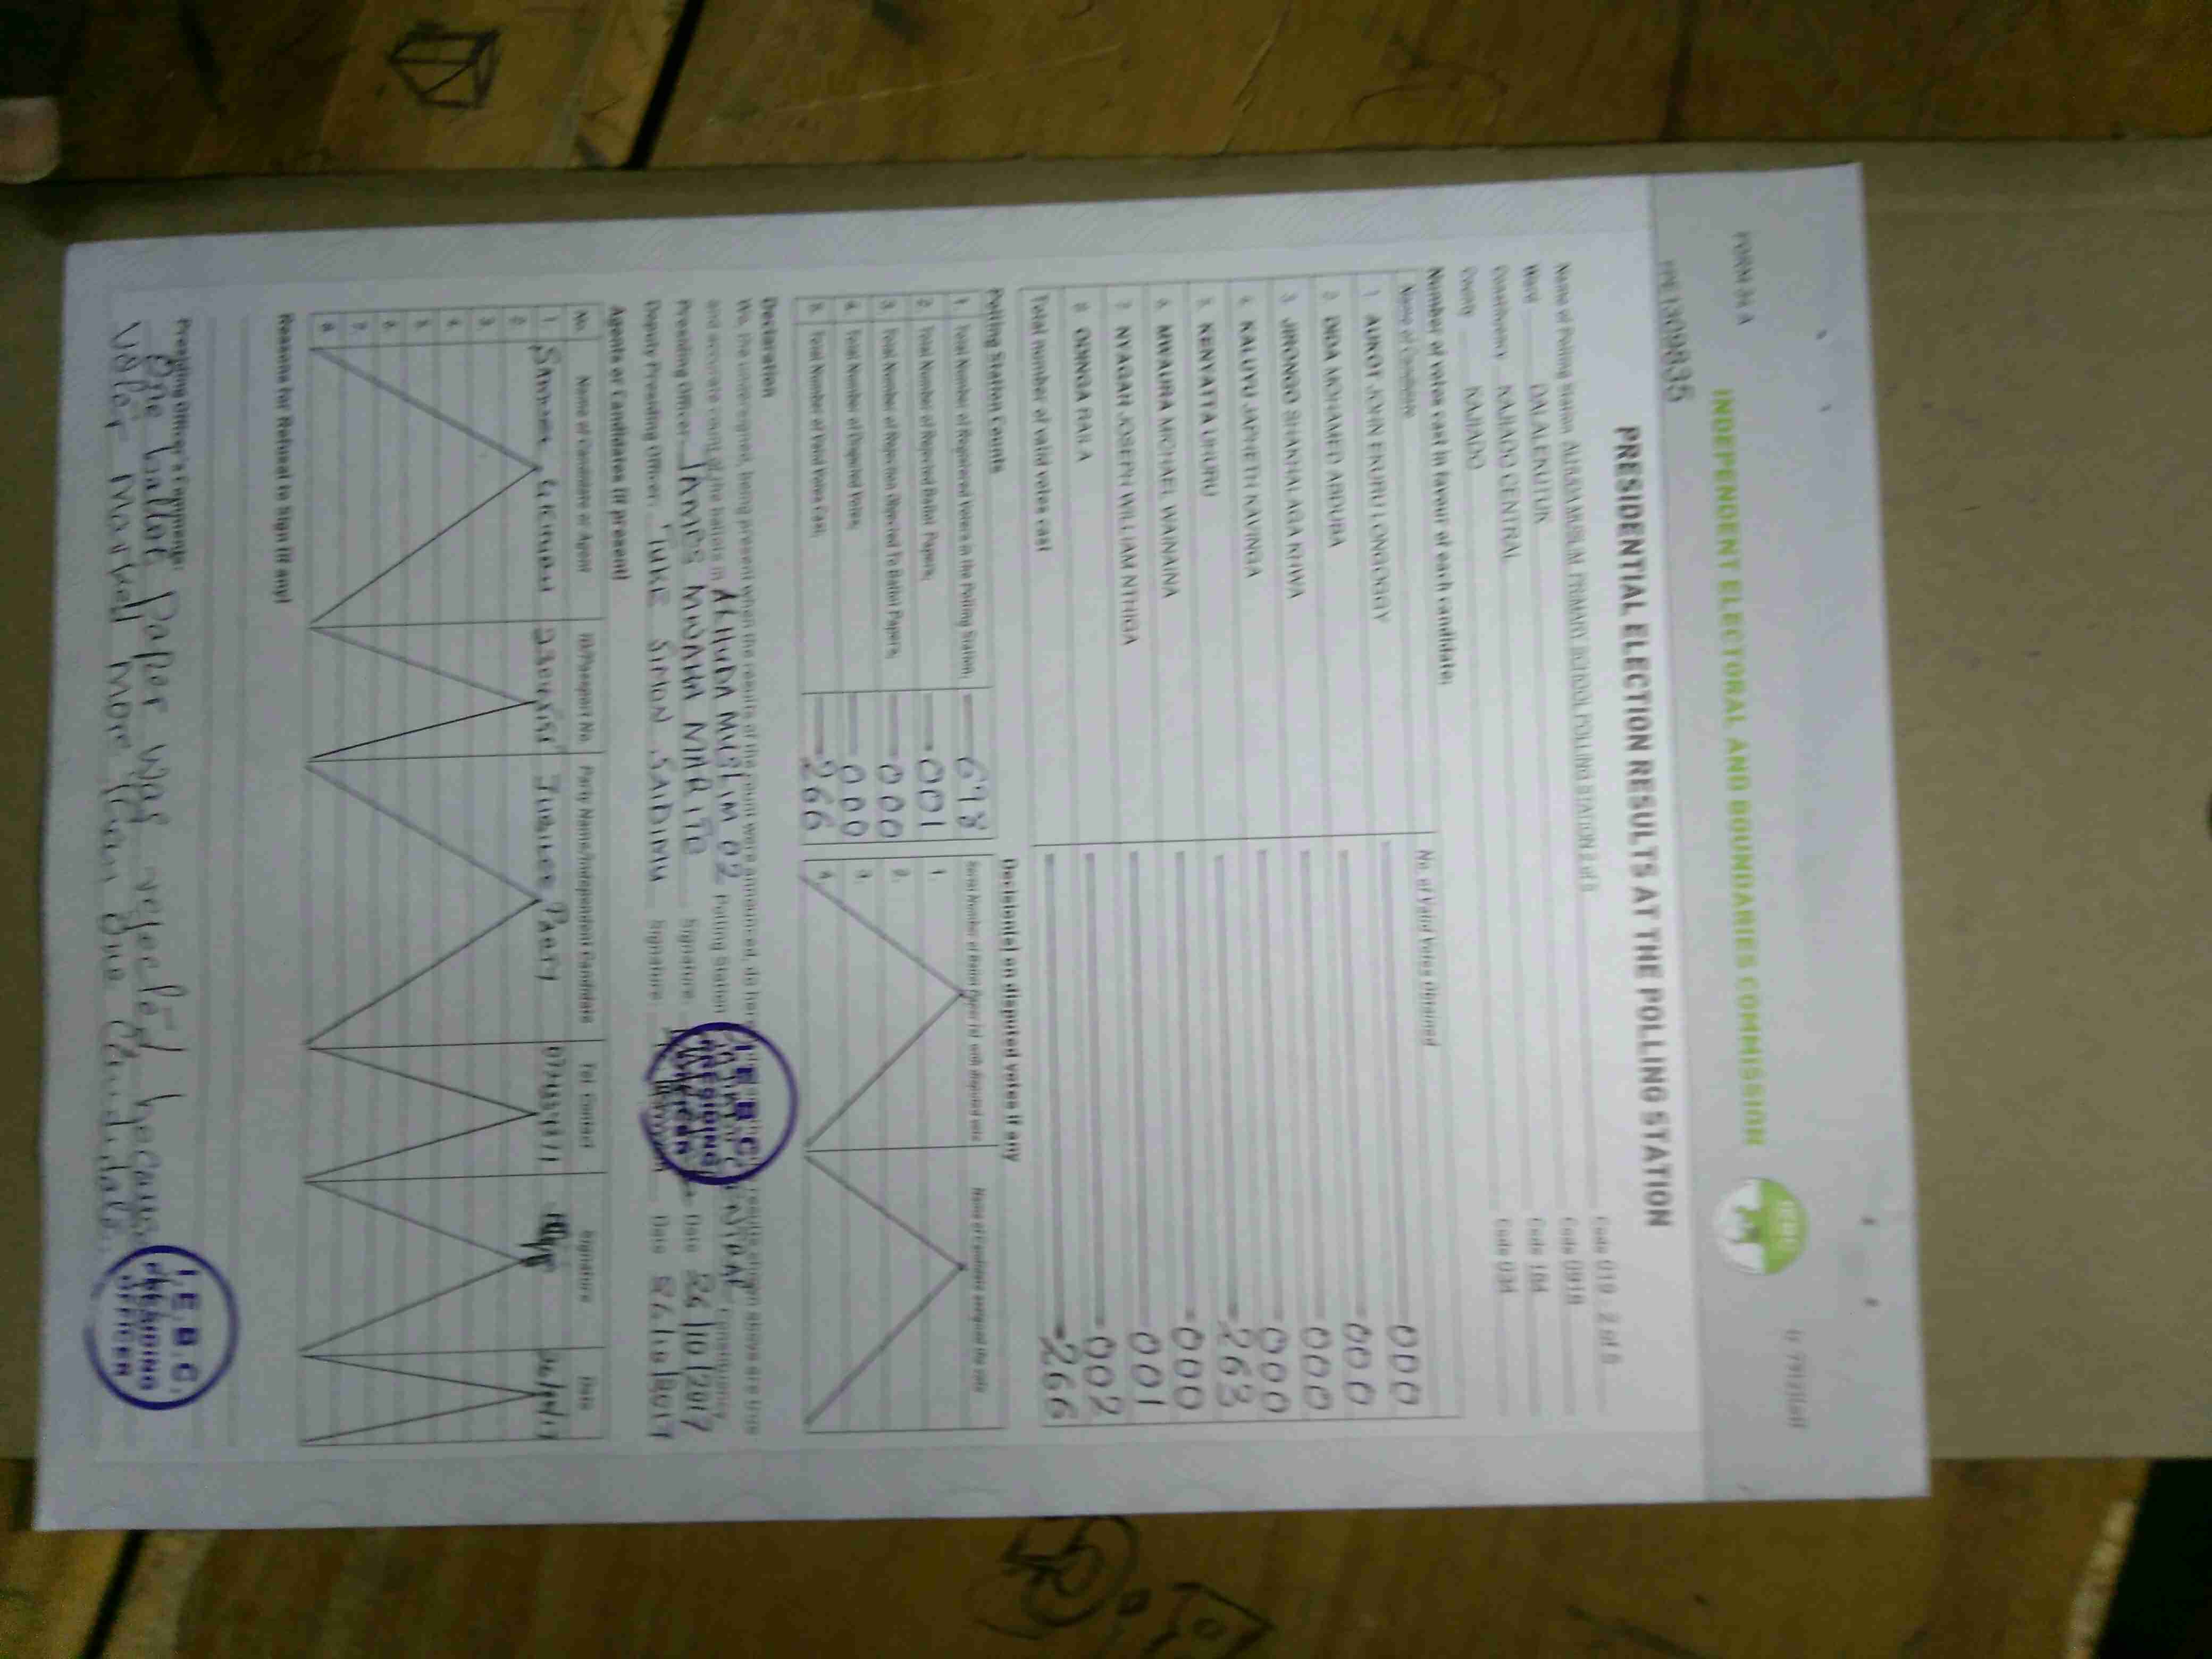 FORM 34 A
INDEPENDENT ELECTORAL AND BOUNDARIES COMMISSION
IEBC
PRESIDENTIAL ELECTION RESULTS AT THE POLLING STATION
Name of Polling Station ALHUDA MUSLIM PRIMARY SCHOOL POLLING STATION 2 of 8 Code 019 - 2 of 8
Ward DALALEKUTUK Code 0918
Constituency KAJIADO CENTRAL Code 184
County KAJIADO Code 034
Number of votes cast in favour of each candidate:
Name of Candidate No. of Valid Votes Obtained
1. AUKOT JOHN EKURU LONGOGGY 000
2. DIDA MOHAMED ABDUBA 000
3. JIRONGO SHAKHALAGA KHWA 000
4. KALUYU JAPHETH KAVINGA 000
5. KENYATTA UHURU 263
6. MWAURA MICHAEL WAINAINA 000
7. NYAGAH JOSEPH WILLIAM NTHIGA 001
8. ODINGA RAILA 002
Total number of valid votes cast 266
Polling Station Counts
1. Total Number of Registered Voters in the Polling Station; 698
2. Total Number of Rejected Ballot Papers; 001
3. Total Number of Rejection Objected To Ballot Papers; 000
4. Total Number of Disputed Votes; 000
5. Total Number of Valid Votes Cast; 266
Decision(s) on disputed votes if any
Serial Number of Ballot Paper (s) with disputed vote Name of Candidate assigned the vote
1.
2.
3.
4.
Declaration
We, the undersigned, being present when the results of the count were announced, do results shown above are true
and accurate count of the ballots in ALHUDA MUSLIM 02 Polling Station Constituency
Presiding Officer JAMES Signature Date 26/10/2017
Deputy Presiding Officer SIMON Signature Date 26/10/2017
I.E.B.C.
PRESIDING
OFFICER
Agents of Candidates (if present)
No. Name of Candidate or Agent ID/Passport No. Party Name/Independent Candidate Tel. Contact Signature Date
1. Jubilee Party
2.
3.
4.
5.
6.
7.
8.
Reasons for Refusal to Sign (if any)
Presiding Officer's Comments:
One ballot Paper was rejected because
Voter Marked more than one Candidate.
I.E.B.C.
PRESIDING
OFFICER